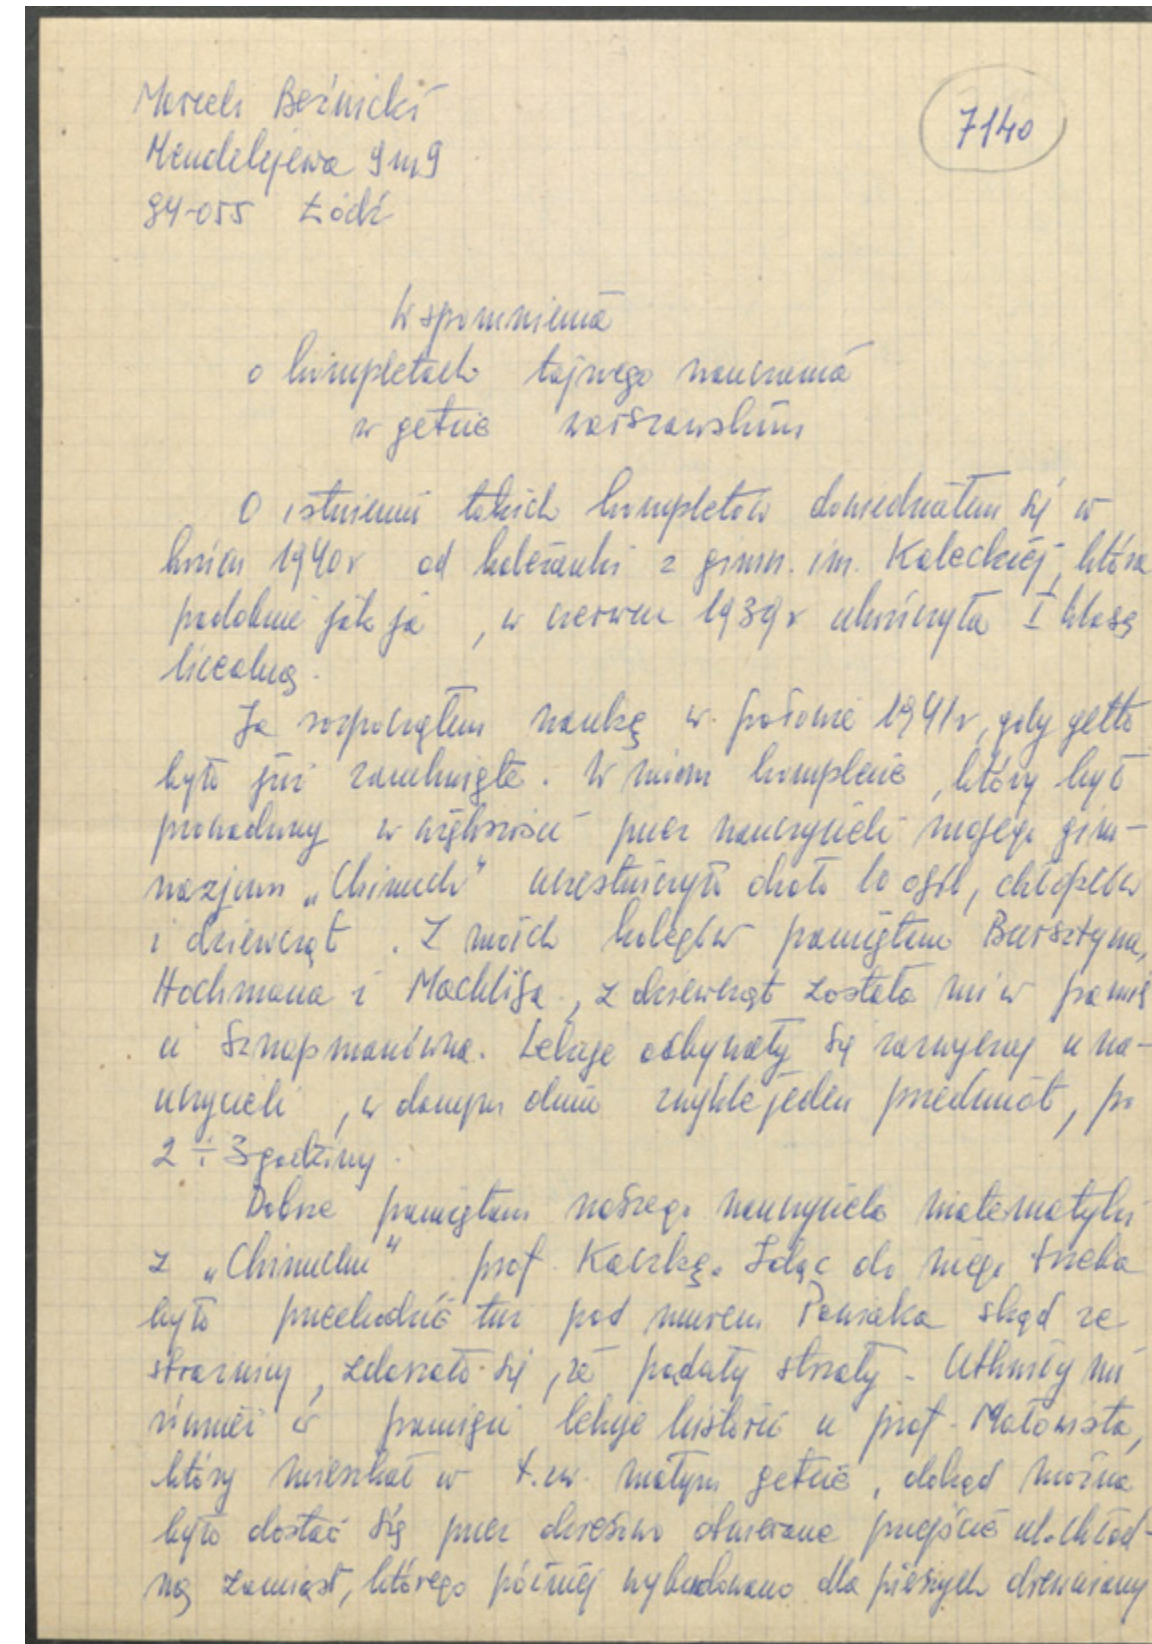 Marceli Beźnicki
7140
Mendelejewa 9 m 9
94-055 Łódź
Wspomnienia
o kompletach tajnego nauczania
w getcie warszawskim
O istnieniu takich kompletów dowiedziałem się w
końcu 1940 r od koleżanki z gimn. im. Kaleckiej, która
podobnie jak ja, w czerwcu 1939 r ukończyła I klasę
licealną.
Ja rozpocząłem naukę w połowie 1941 r, gdy getto
było już zamknięte. W moim komplecie, który był
prowadzony w większości przez nauczycieli mojego gim-
nazjum „Chinuch" uczestniczyło około 10 osób, chłopców
i dziewcząt. Z moich kolegów pamiętam Bursztyna,
Hochmana i Machlisa, z dziewcząt została mi w pamię
ci Sznapmanówna. Lekcje odbywały się zazwyczaj u na-
uczycieli, w danym dniu zwykle jeden przedmiot, po
2 ÷ 3 godziny.
Dobrze pamiętam naszego nauczyciela matematyki
z „Chinuchu" prof. Kaczkę. Idąc do niego trzeba
było przechodzić tuż pod murem Pawiaka skąd ze
strażnicy, zdarzało się, że padały strzały. Utkwiły mi
również w pamięci lekcje historii u prof. Małowista,
który mieszkał w t.zw. małym getcie, dokąd można
było dostać się przez okresowo otwierane przejście ul. Chłod-
ną zamiast, którego później wybudowano dla pieszych drewniany